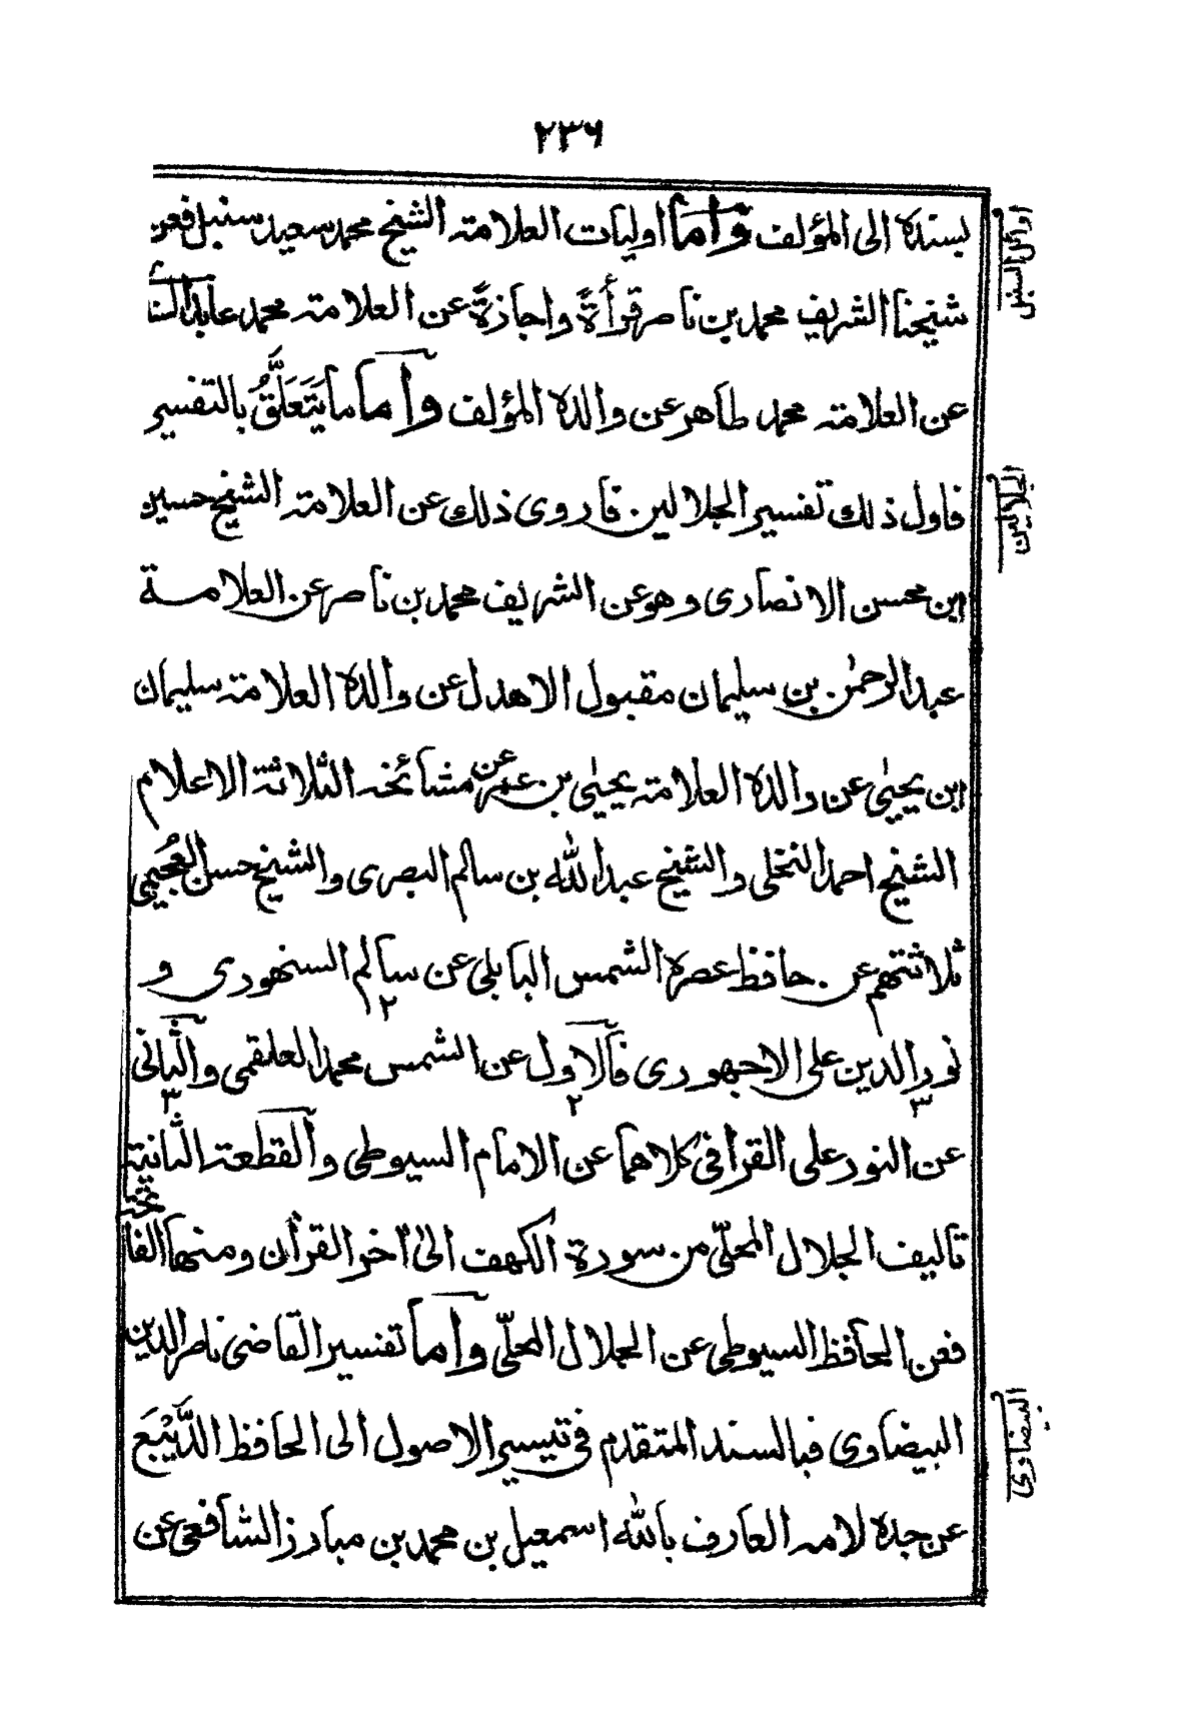 ٢٣٦
بسنده الى المؤلف وأما اوليات العلامته الشيخ محمد سعيد سنبل فعن
اوائل السنبل
شيخنا الشريف محمد بن ناصر قرأةً واجازةً عن العلامته محمد عابد السنا
عن العلامته محمد طاهر عن والده المؤلف وأما ما يَتَعَلَّقُ بالتفسير
فاول ذلك تفسير الجلالين فاروى ذلك عن العلامته الشيخ حسين
الجلالين
ابن محسن الانصارى وهو عن الشريف محمد بن ناصر عن العلامة
عبد الرحمٰن بن سليمان مقبول الاهدل عن والده العلامته سليمان
ابن يحيٰى عن والده العلامته يحيٰى بن عمر عن مشائخه الثلاثته الاعلام
الشيخ احمد النخلى والشيخ عبد الله بن سالم البصرى والشيخ حسن العُجَيمى
ثلاثتهم عن حافظ عصره الشمس البابلى عن سالم السنهورى و
٢
نور الدين على الاجهورى فالاول عن الشمس محمد العلقمى والثانى
٣ ٢ ٣
عن النور على القرافى كلاهما عن الامام السيوطى والقطعته الثانيته
تاليف الجلال المحلّى من سورة الكهف الىٰ اٰخر القراٰن ومنها الفا
تحته
فعن الحافظ السيوطى عن الجلال المحلّى وأما تفسير القاضى ناصر الدين
البيضاوى فبالسند المتقدم فى تيسير الاصول الى الحافظ الدَّيْبَع
البيضاوي
عن جده لامه العارف بالله اسمعيل بن محمد بن مبارز الشافعى عن